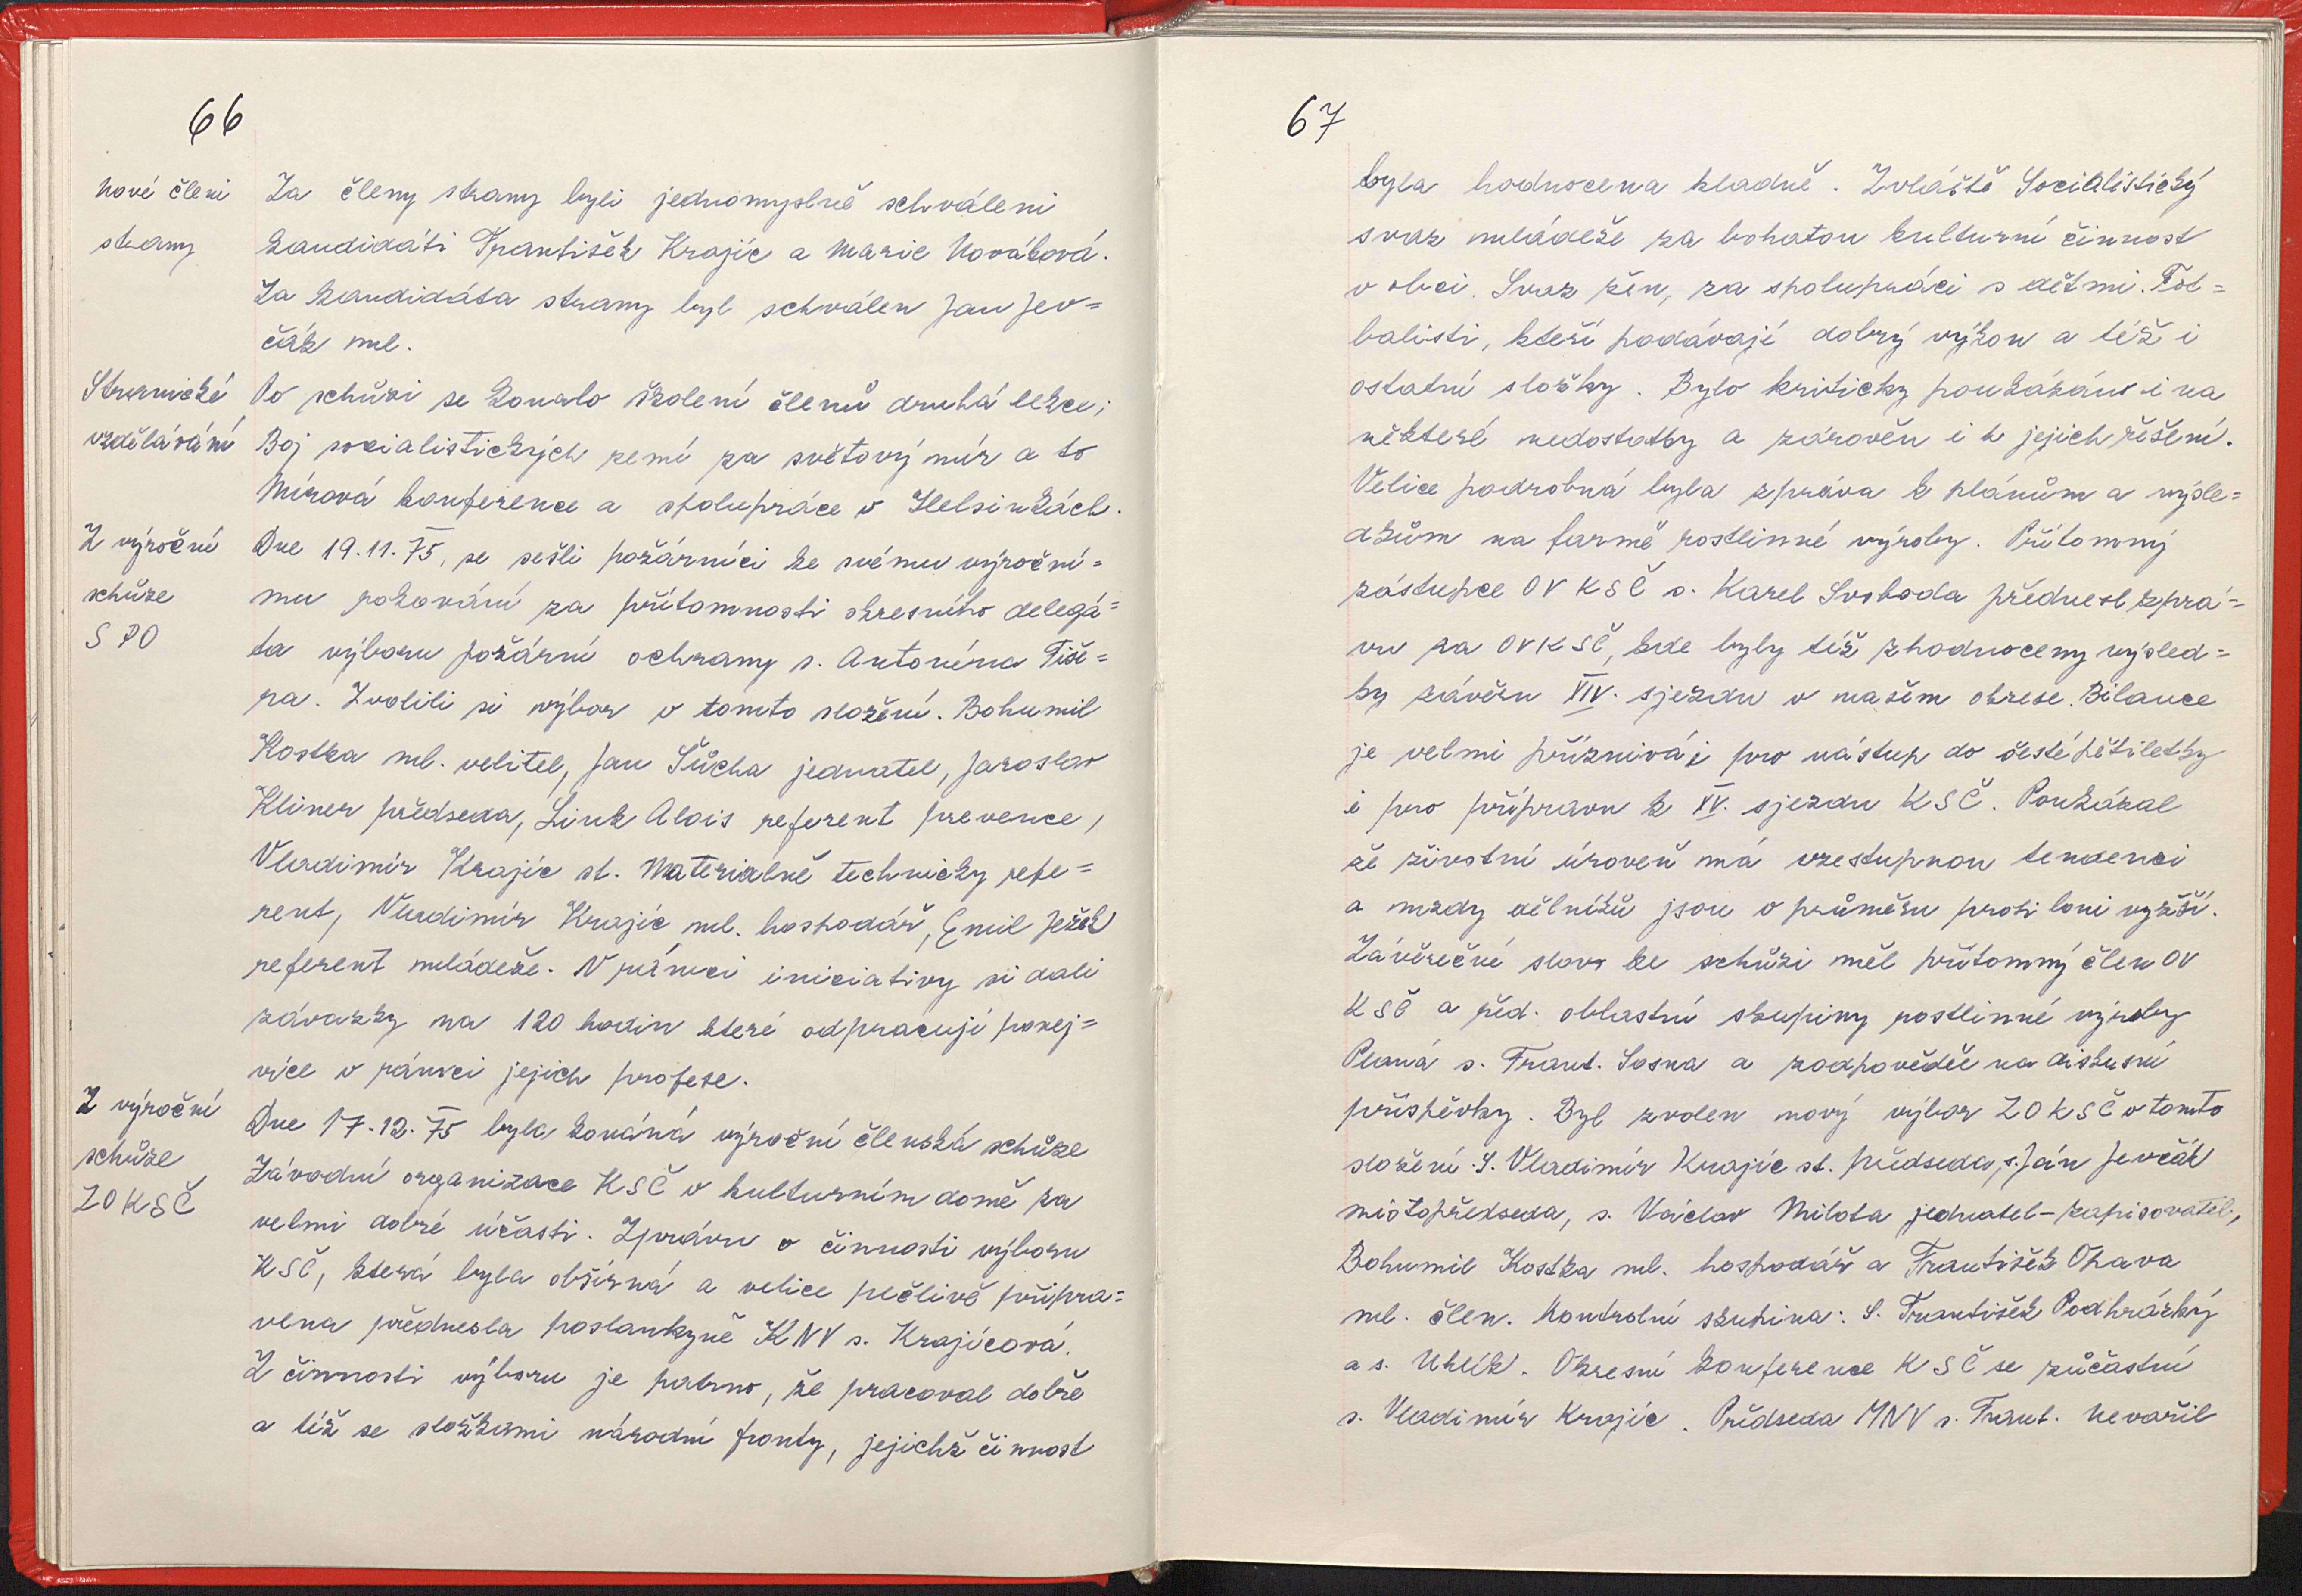 66
Nové členi
strany
Za členy strany byli jednomyslně schváleni
kandidáti František Krajíc a Marie Nováková.
Za kandidáta strany byl schválen Jan Jev=
čák ml.
Stranické
vzdělávání
Po schůzi se konalo školení členů druhá lekce;
Boj socialistických zemí za světový mír a to
Mírová konference a spolupráce v Helsinkách.
Z výroční
schůze
SPO
Dne 19.11.75, se sešli požárníci ke svému výroční=
mu rokování za přítomnosti okresního delegá=
ta výboru požární ochrany s. Antonína Tiše=
ra. Zvolili si výbor v tomto složení. Bohumil
Kostka ml. velitel, Jan Šůcha jednatel, Jaroslav
Kliner předseda, Link Alois referent prevence,
Vladimír Krajíc st. Materialně technicky refe=
rent, Vladimír Krajíc ml. hospodář, Emil Ježek
referent mládeže. V rámci iniciativy si dali
závazky na 120 hodin které odpracují ponej=
více v rámci jejich profese.
Z výroční
schůze
ZO KSČ
Dne 17.12.75 byla konáná výroční členská schůze
Závodní organizace KSČ v kulturním domě za
velmi dobré účasti. Zprávu o činnosti výboru
KSČ, která byla obšírná a velice pečlivě připra=
vena přednesla poslankyně KNV s. Krajícová.
Z činnosti výboru je patrno, že pracoval dobře
a též se složkami národní fronty, jejichž činnost
67
byla hodnocena kladně. Zvláště Socialistický
svaz mládeže za bohatou kulturní činnost
v obci. Svaz žen, za spolupráci s dětmi. Fot=
balisti, kteří podávají dobrý výkon a též i
ostatní složky. Bylo kriticky poukázáno i na
některé nedostatky a zárověn i k jejich řešení.
Velice podrobná byla zpráva k plánům a výsle=
dkům na farmě rostlinné výroby. Přítomný
zástupce OV KSČ s. Karel Svoboda přednesl zprá=
vu za OV KSČ, kde byly též zhodnoceny výsled=
ky závěru XIV. sjezdu v našem okrese. Bilance
je velmi příznivá i pro nástup do šesté pětiletky
i pro přípravu k XV. sjezdu KSČ. Poukázal
že životní úroveň má vzestupnou tendenci
a mzdy dělníků jsou v průměru proti loni vyšší.
Závěrečné slovo ke schůzi měl přítomný člen OV
KSČ a řed. oblastní skupiny rostlinné výroby
Planá s. Frant. Sosna a zodpověděl na diskusní
příspěvky. Byl zvolen nový výbor ZO KSČ v tomto
složení. S. Vladimír Krajíc st. předseda, s. Ján Jevčák
mistopředseda, s. Václav Milota jednatel-zapisovatel,
Bohumil Kostka ml. hospodář a František Ohava
ml. člen. Kontrolní skupina: S. František Podhrázký
a s. Uhlík. Okresní konference KSČ se zůčastní
s. Vladimír Krajíc. Předseda MNV s. Frant. Nevařil